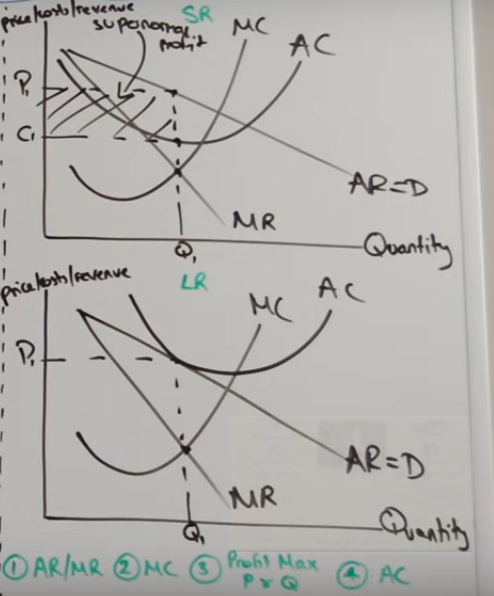 price/costs/revenue
SR
supernormal
profit
MC
AC
P₁
C₁
AR=D
MR
Q₁
Quantity
price/costs/revenue
LR
MC
AC
P₁
AR=D
MR
Q₁
Quantity
① AR/MR ② MC ③ Profit Max
P x Q ④ AC